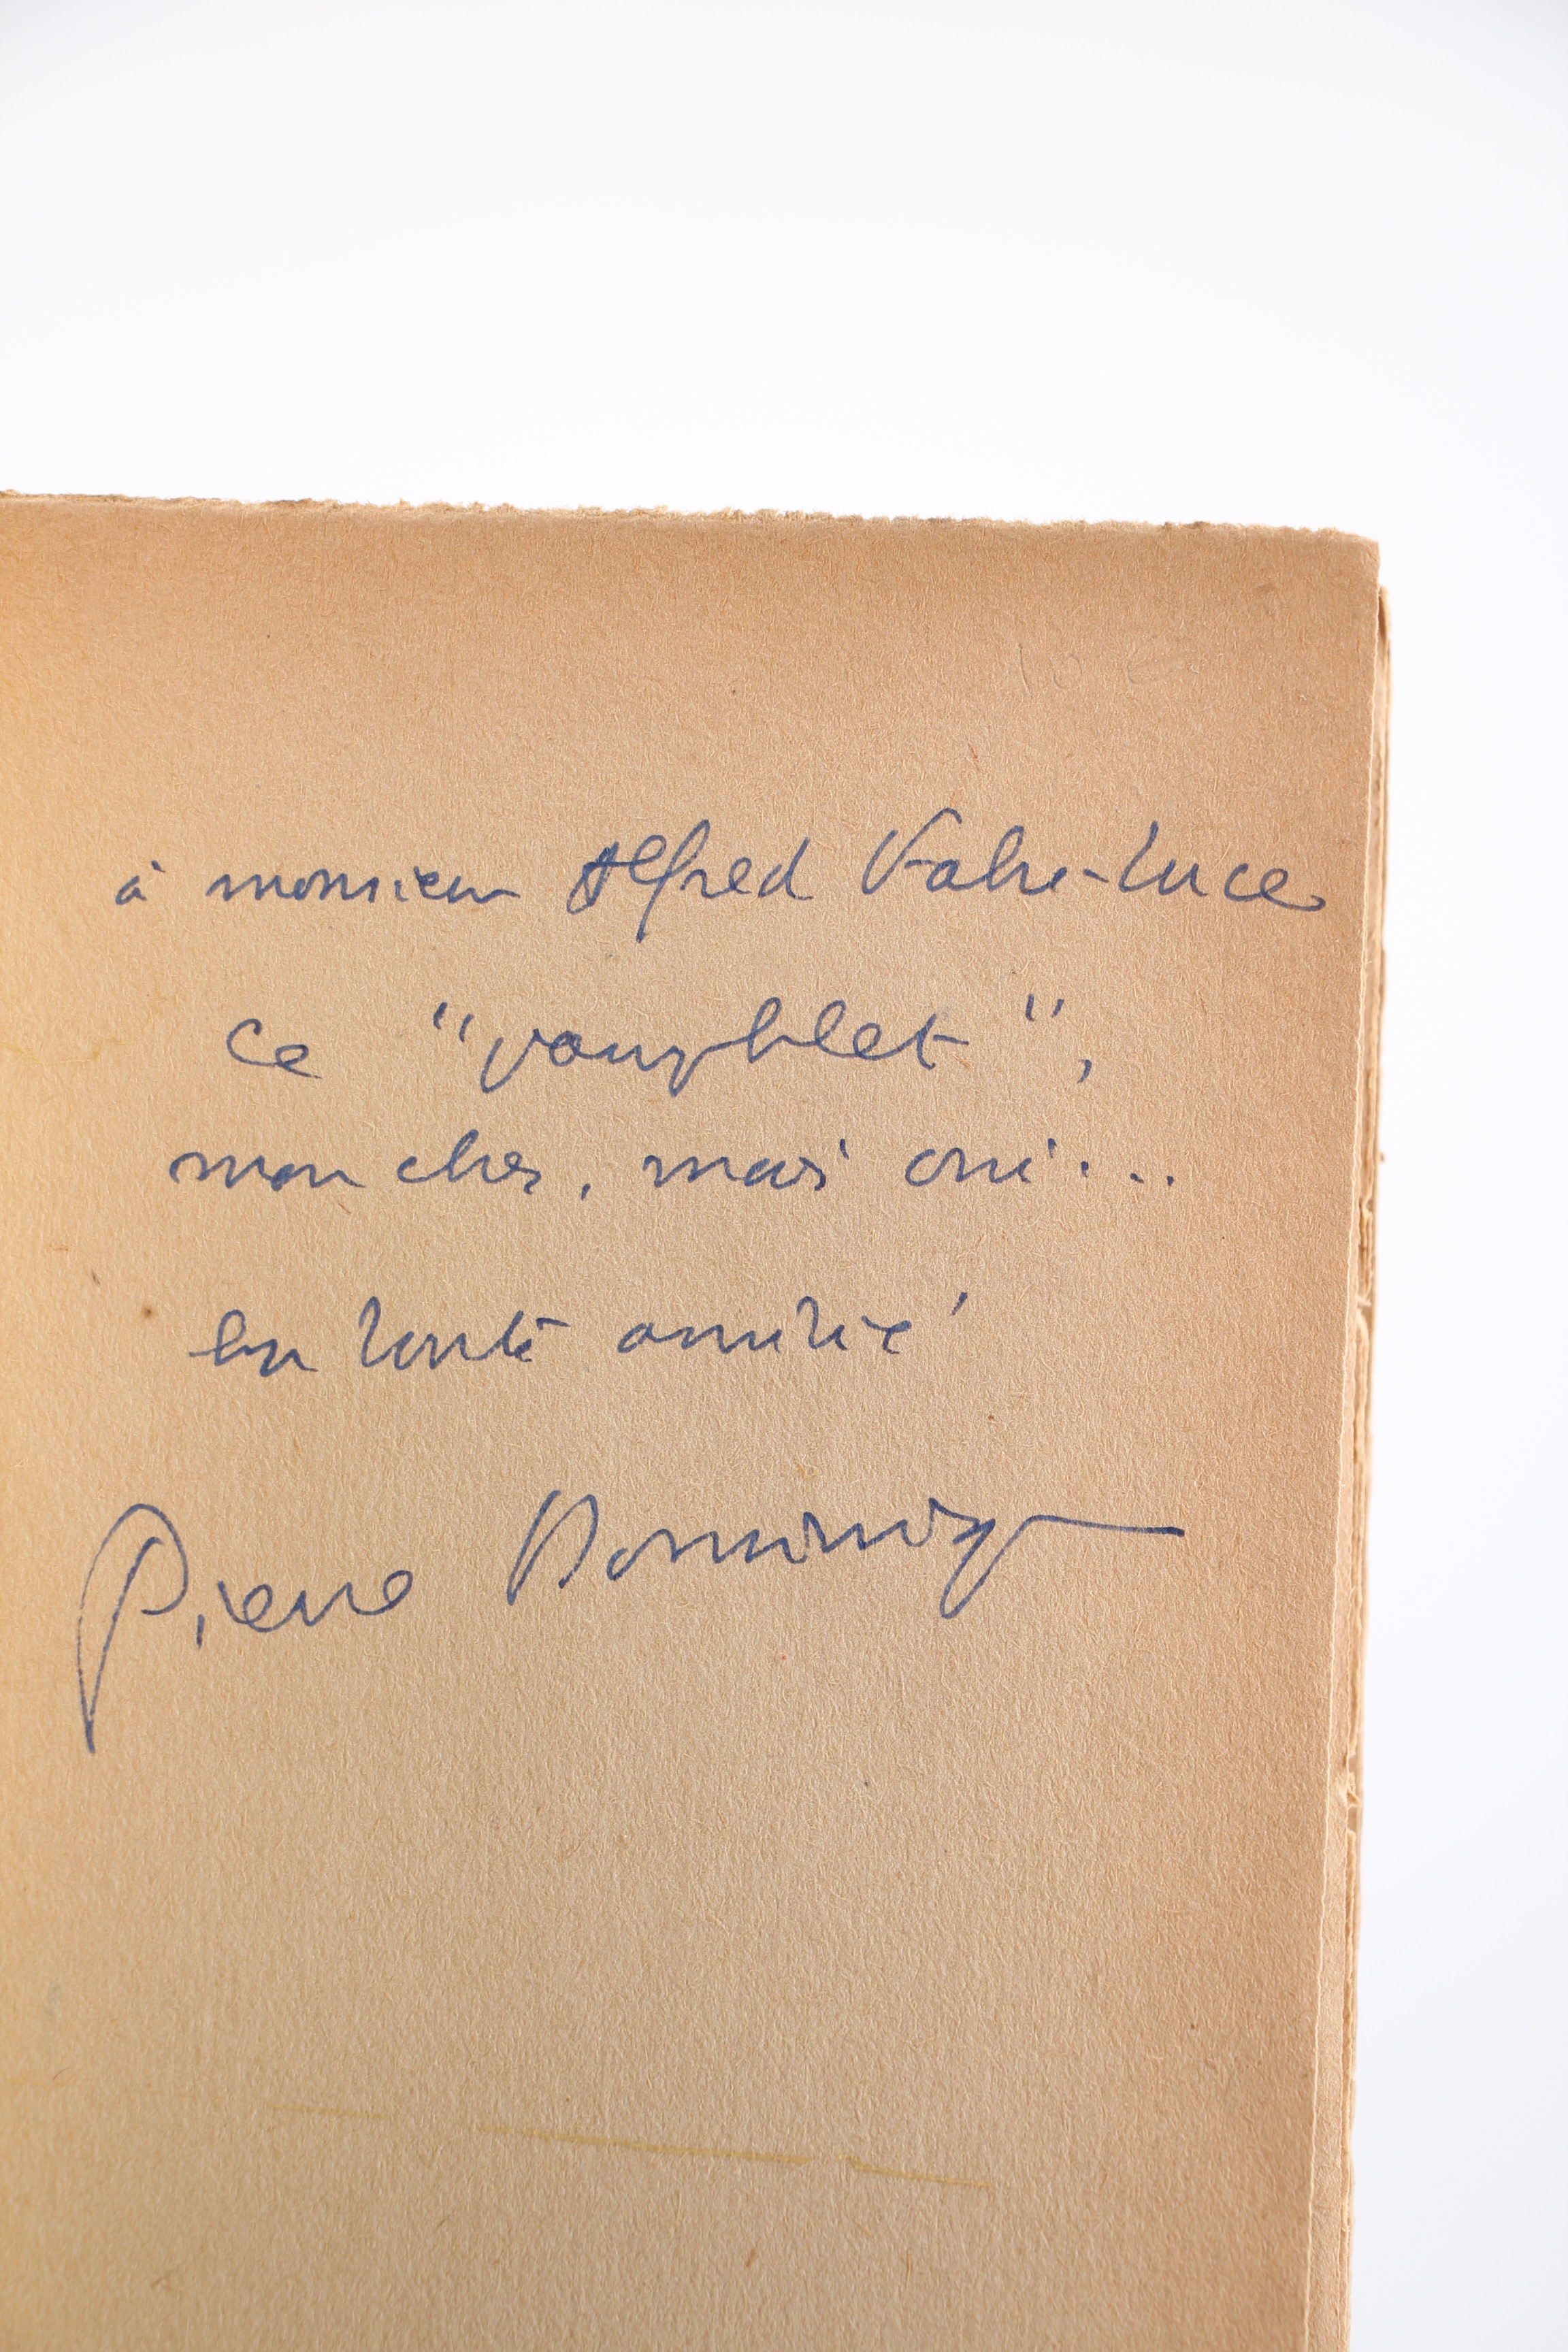 10 €
à monsieur Alfred Fabre-Luce
ce "pamphlet",
mon cher, mais oui...
en toute amitié
Pierre Dominique